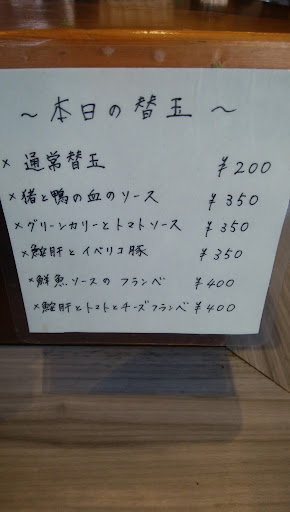 ～本日の替玉～
× 通常替玉 ¥200
×猪と鴨の血のソース ¥350
×グリーンカリーとトマトソース ¥350
×鮟肝とイベリコ豚 ¥350
×鮮魚ソースのフランベ ¥400
×鮟肝とトマトとチーズフランベ ¥400